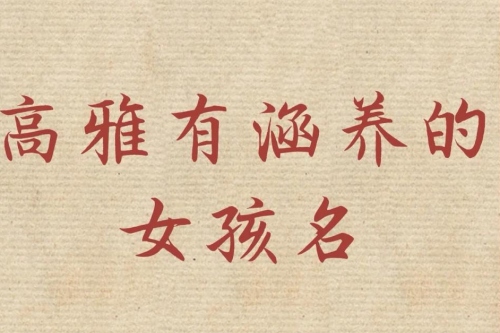 高雅有涵养的
女孩名